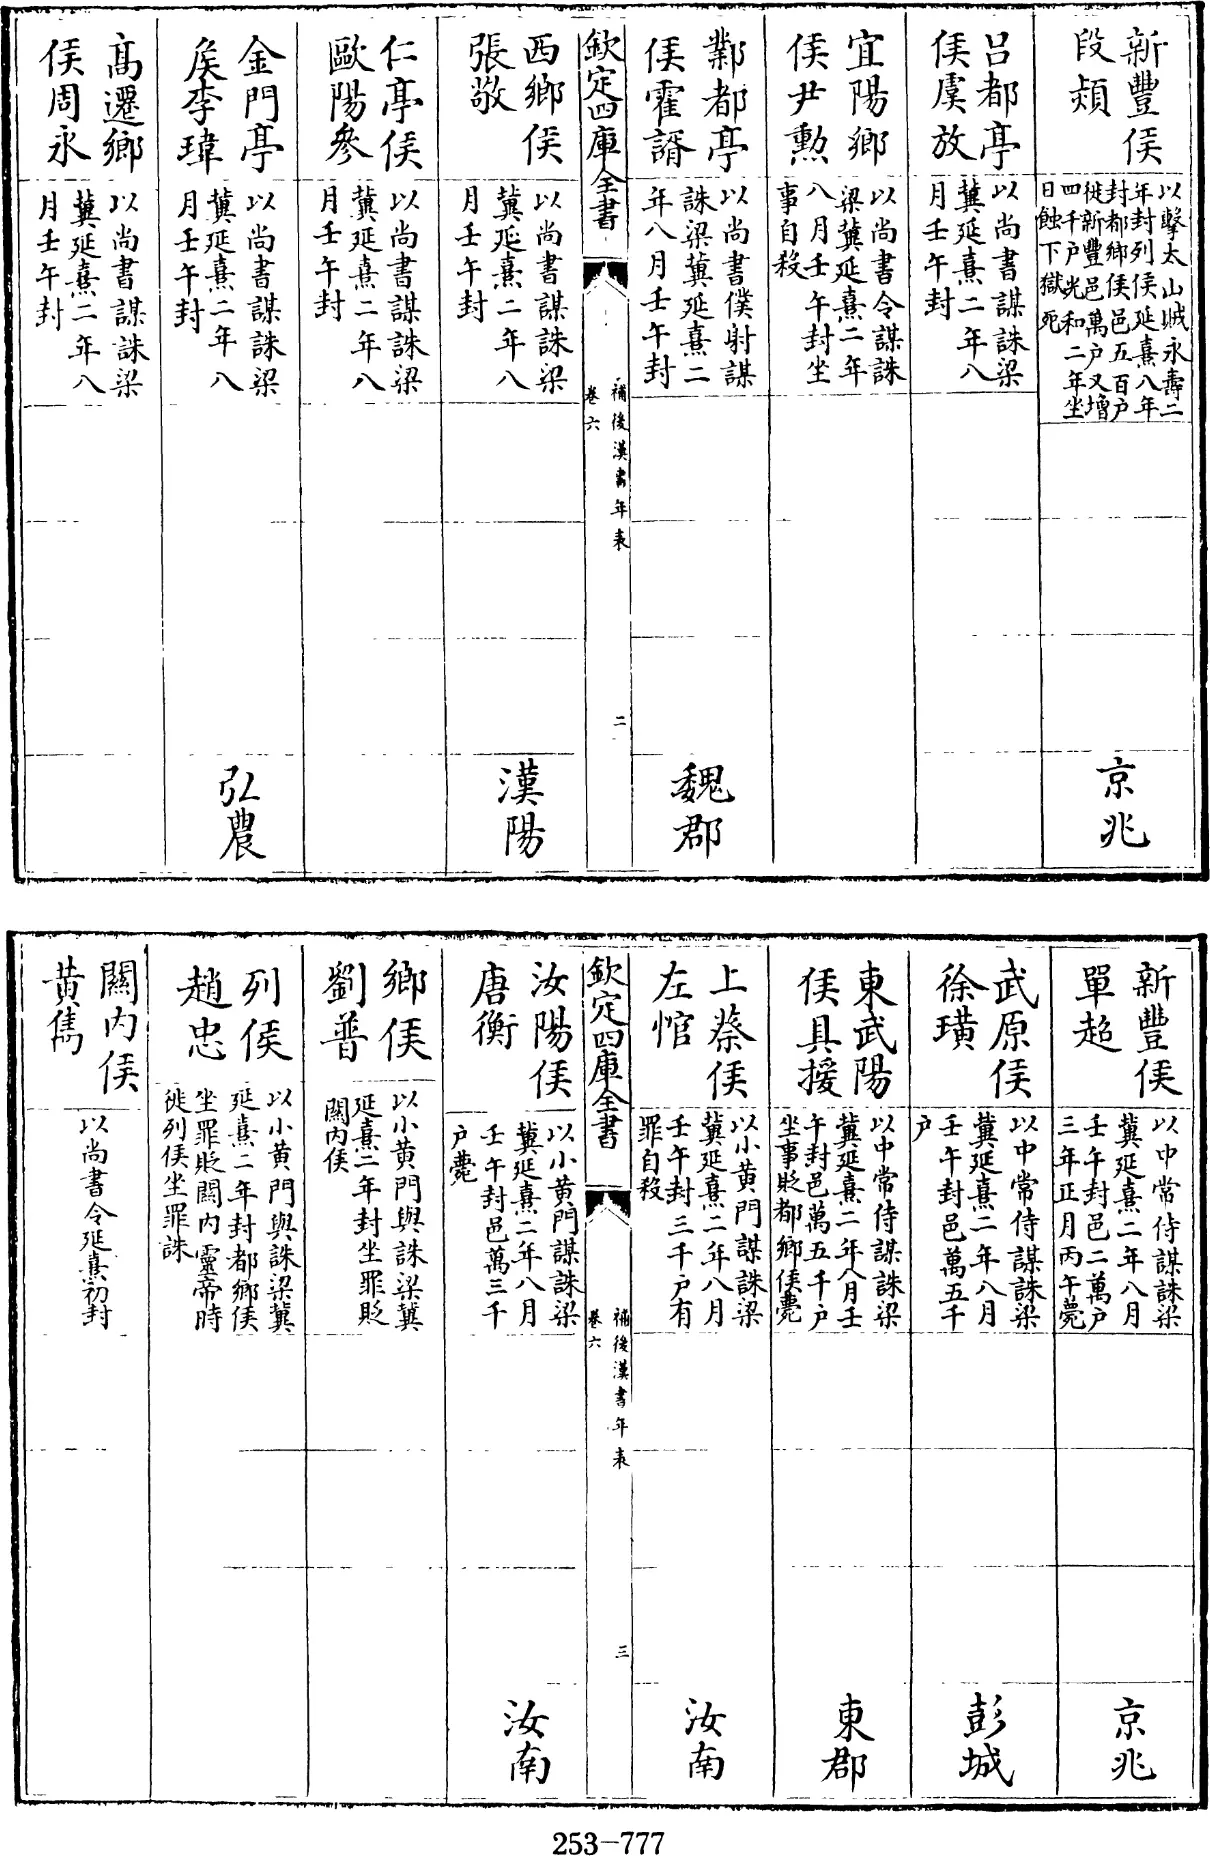 新豐侯
段熲
以擊太山賊永壽二
年封列侯延熹八年
封都鄉侯邑五百户
徙新豐邑萬户又增
四千户光和二年坐
日蝕下獄死
京兆
吕都亭
侯虞放
以尚書謀誅梁
冀延熹二年八
月壬午封
宜陽鄉
侯尹勲
以尚書令謀誅
梁冀延熹二年
八月壬午封坐
事自殺
鄴都亭
侯霍諝
以尚書僕射謀
誅梁冀延熹二
年八月壬午封
魏郡
欽定四庫全書
補後漢書年表
卷六
二
西鄉侯
張敬
以尚書謀誅梁
冀延熹二年八
月壬午封
漢陽
仁亭侯
歐陽參
以尚書謀誅梁
冀延熹二年八
月壬午封
金門亭
侯李瑋
以尚書謀誅梁
冀延熹二年八
月壬午封
弘農
髙遷鄉
侯周永
以尚書謀誅梁
冀延熹二年八
月壬午封
新豐侯
單超
以中常侍謀誅梁
冀延熹二年八月
壬午封邑二萬户
三年正月丙午薨
京兆
武原侯
徐璜
以中常侍謀誅梁
冀延熹二年八月
壬午封邑萬五千
户
彭城
東武陽
侯具援
以中常侍謀誅梁
冀延熹二年八月壬
午封邑萬五千户
坐事貶都鄉侯薨
東郡
上蔡侯
左悺
以小黄門謀誅梁
冀延熹二年八月
壬午封三千户有
罪自殺
汝南
欽定四庫全書
補後漢書年表
卷六
三
汝陽侯
唐衡
以小黄門謀誅梁
冀延熹二年八月
壬午封邑萬三千
户薨
汝南
鄉侯
劉普
以小黄門與誅梁冀
延熹二年封坐罪貶
關内侯
列侯
趙忠
以小黄門與誅梁冀
延熹二年封都鄉侯
坐罪貶關内靈帝時
徙列侯坐罪誅
關内侯
黄雋
以尚書令延熹初封
253-777